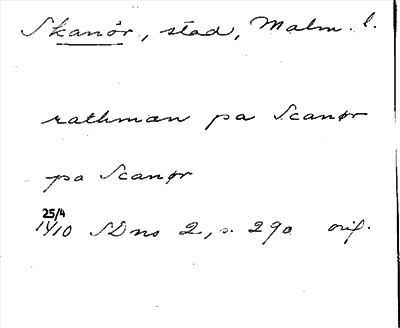 Skanör, stad, Malm. l.
rathmæn pa Scanør
pa Scanør
25/4
1410 SDns 2, s. 290 orig.